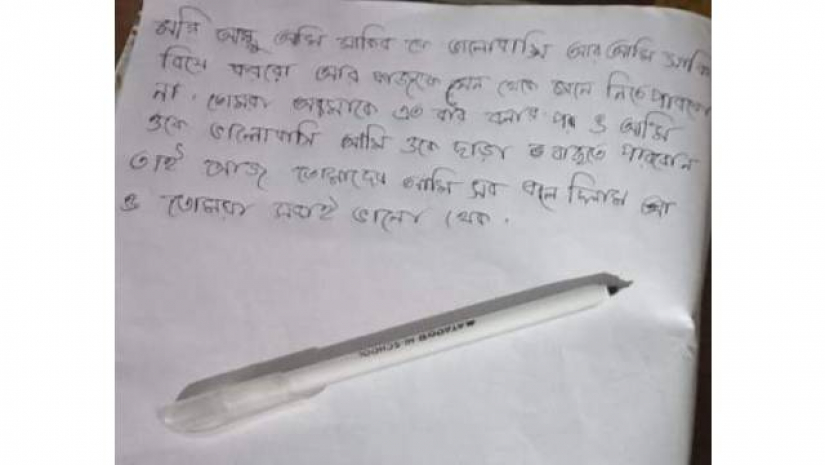 সরি আম্মু আমি সাকিব কে ভালোবাসি আর আমি সাকিব
বিয়ে করবো আর কাউকে মেন থেকে মেনে নিতে পারবো
না. তোমরা আমাকে এত বার বলার পর ও আমি
ওকে ভালোবাসি আমি ওকে ছাড়া বাচতে পারবোনা
তাই আজ তোমাদের আমি সব বলে দিলাম
ও তোমরা সবাই ভালো থেক.
MATADOR HI-SCHOOL